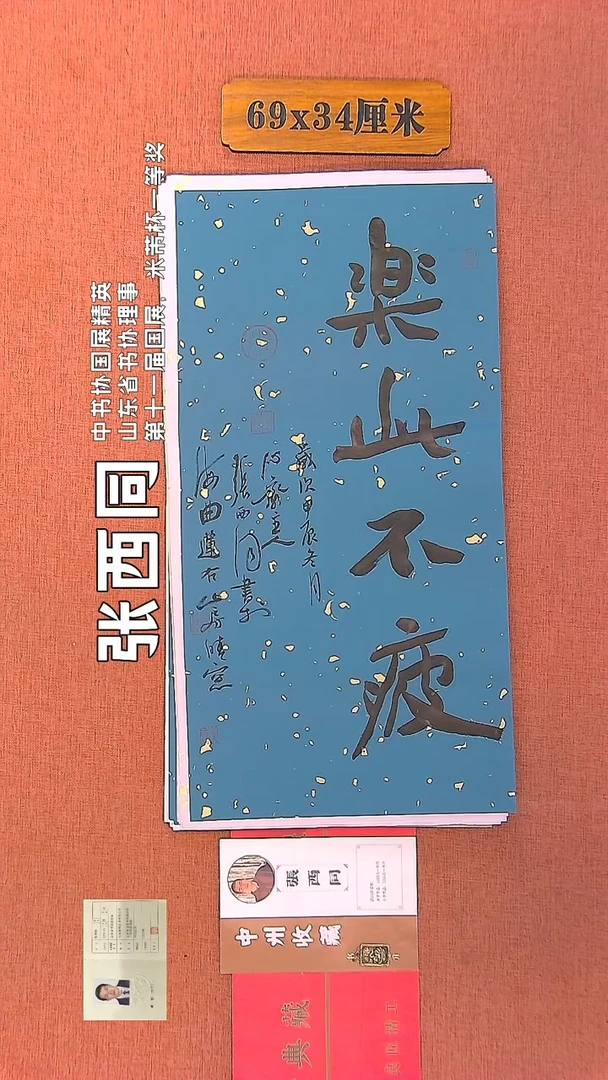 69x34厘米
中书协国展精英
山东省书协理事
第十一届国展，米芾杯一等奖
张西同
楽此不疲
歲次甲辰冬月
心齋主人
張西同書於
海曲蓮石山房晴窓
張西同
中州收藏
典藏